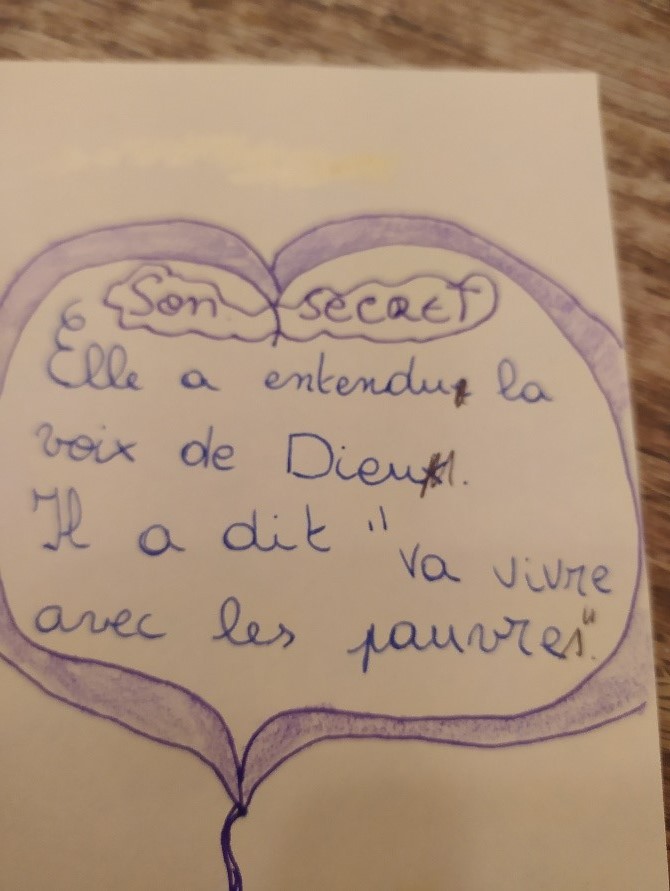 Son secret
Elle a entendu la
voix de Dieu.
Il a dit "va vivre
avec les pauvres".